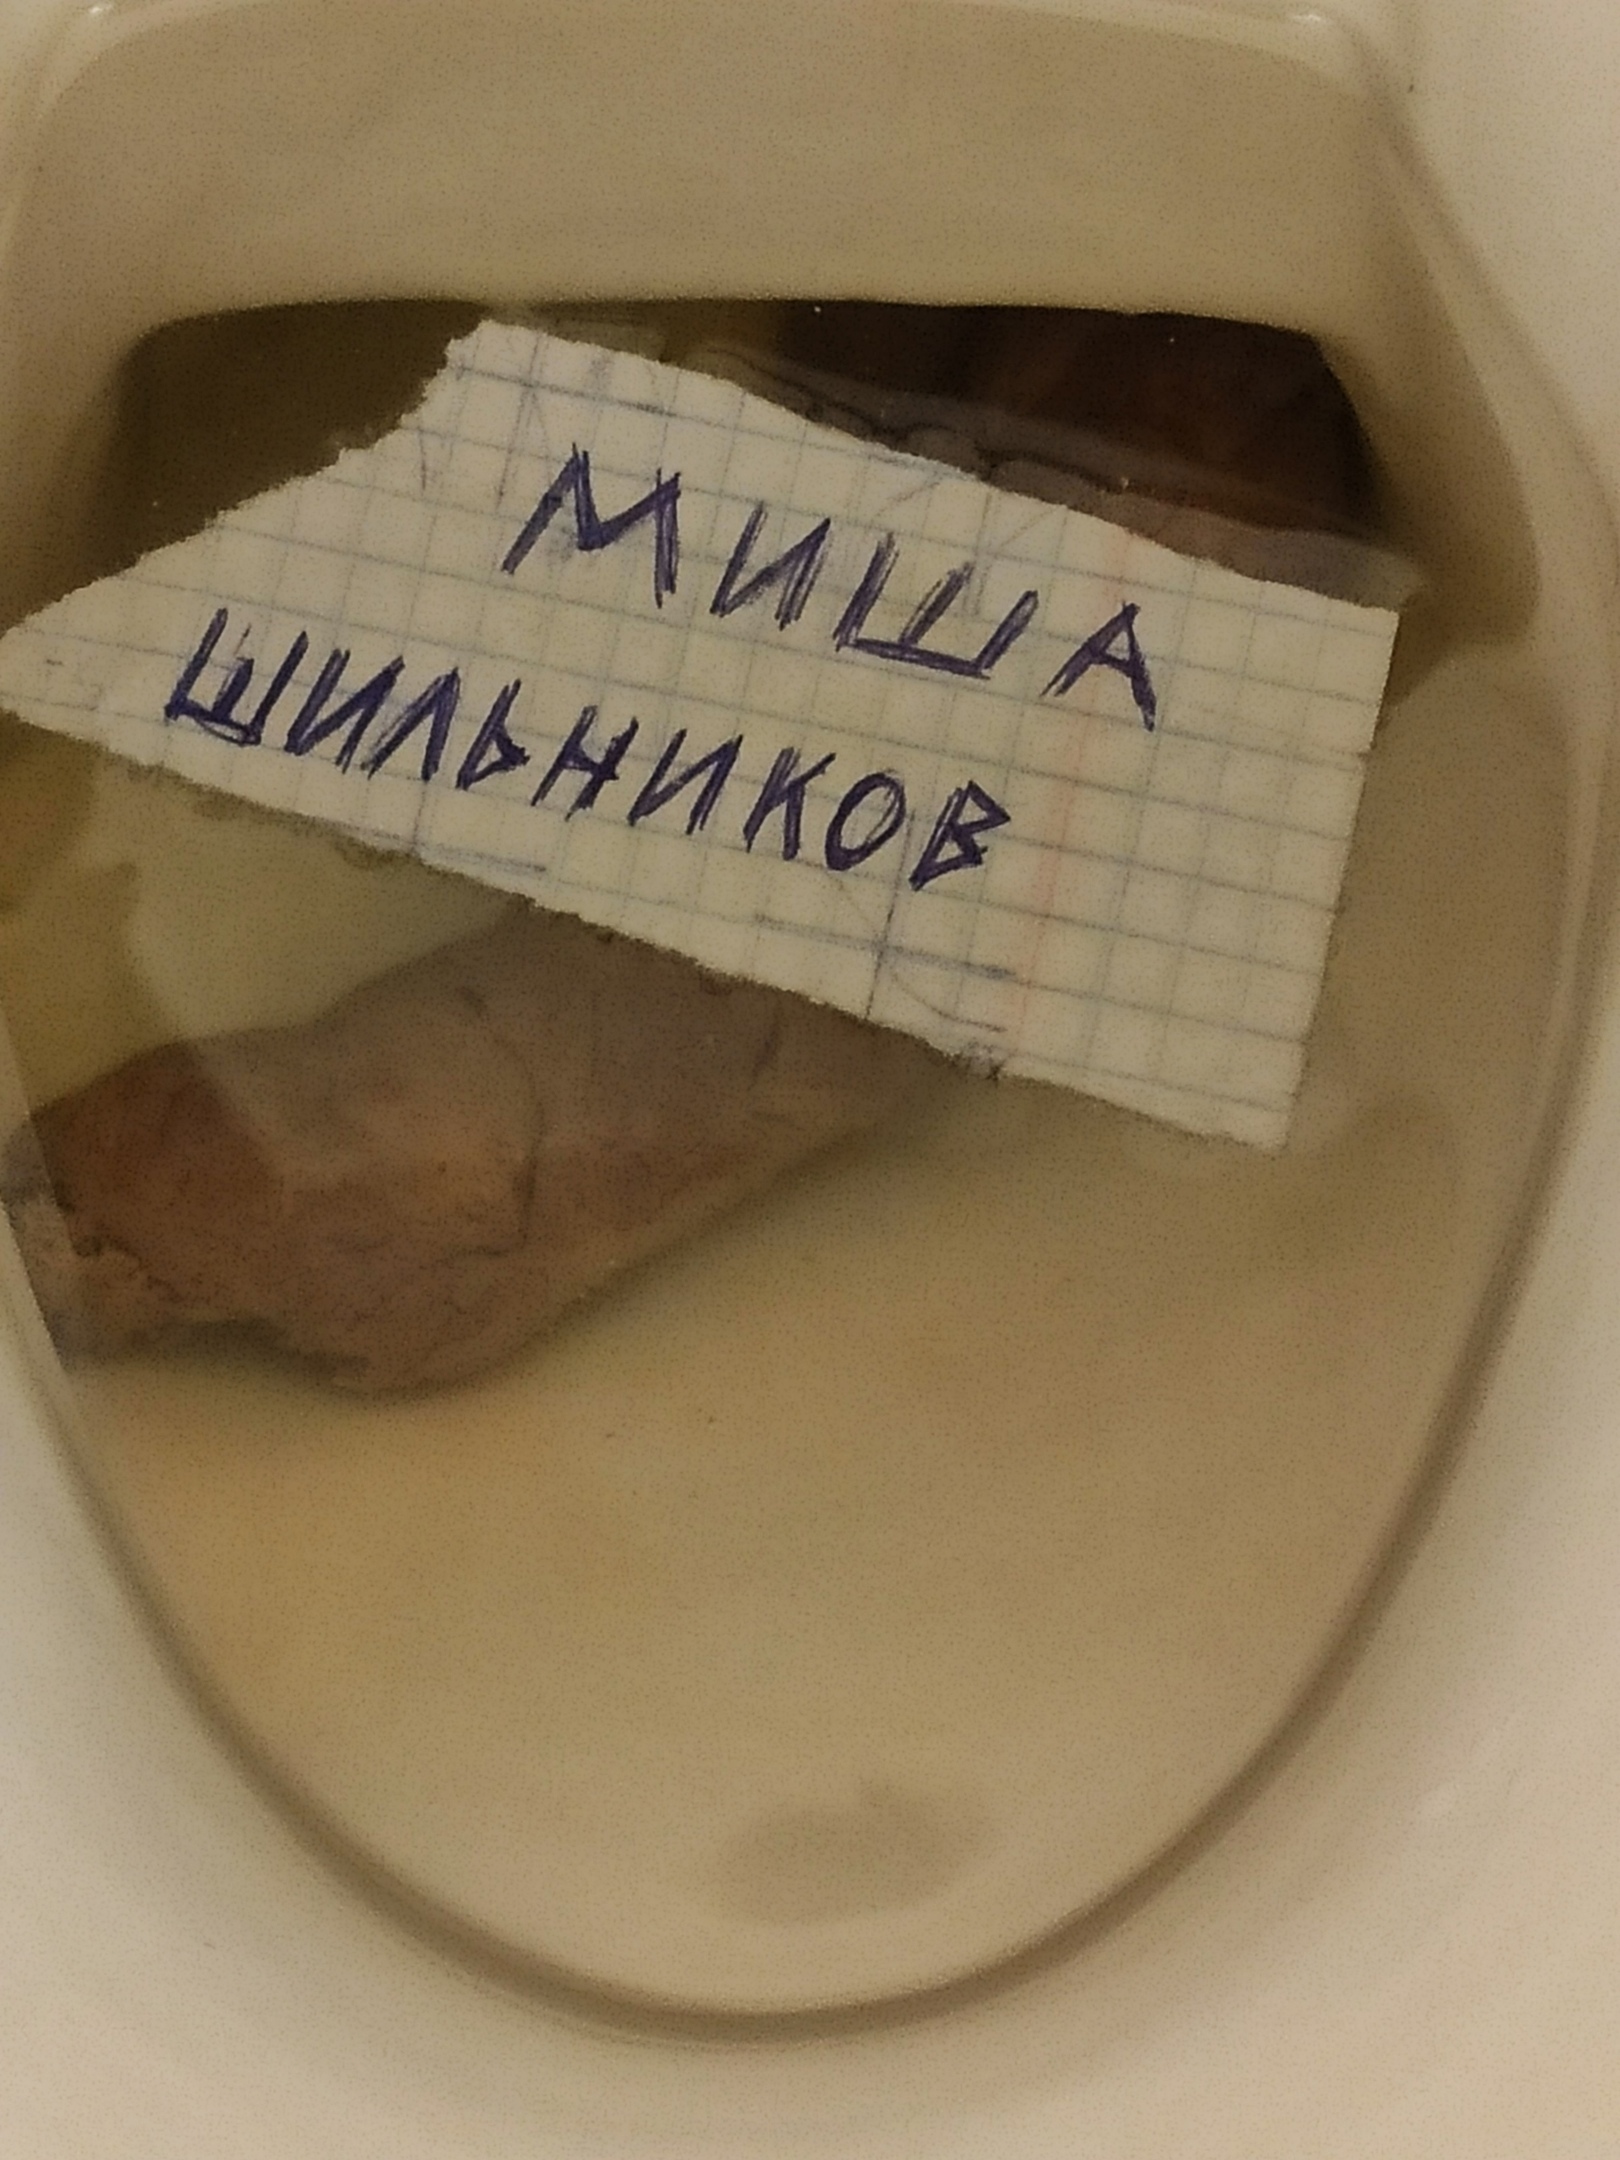 МИША
ШИЛЬНИКОВ